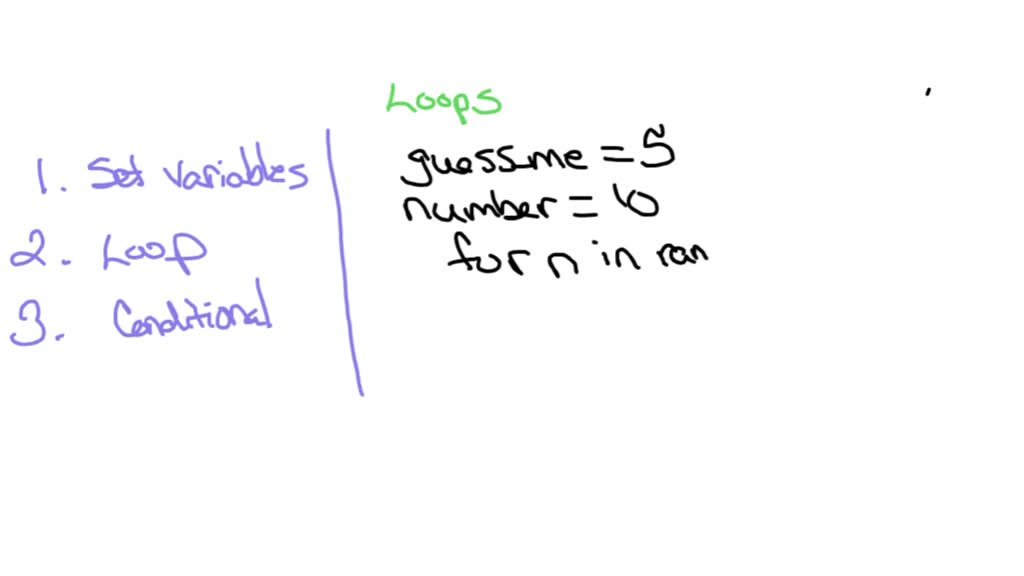 Loops
1. Set variables
2. Loop
3. Conditional
guess_me = 5
number = 10
for n in ran